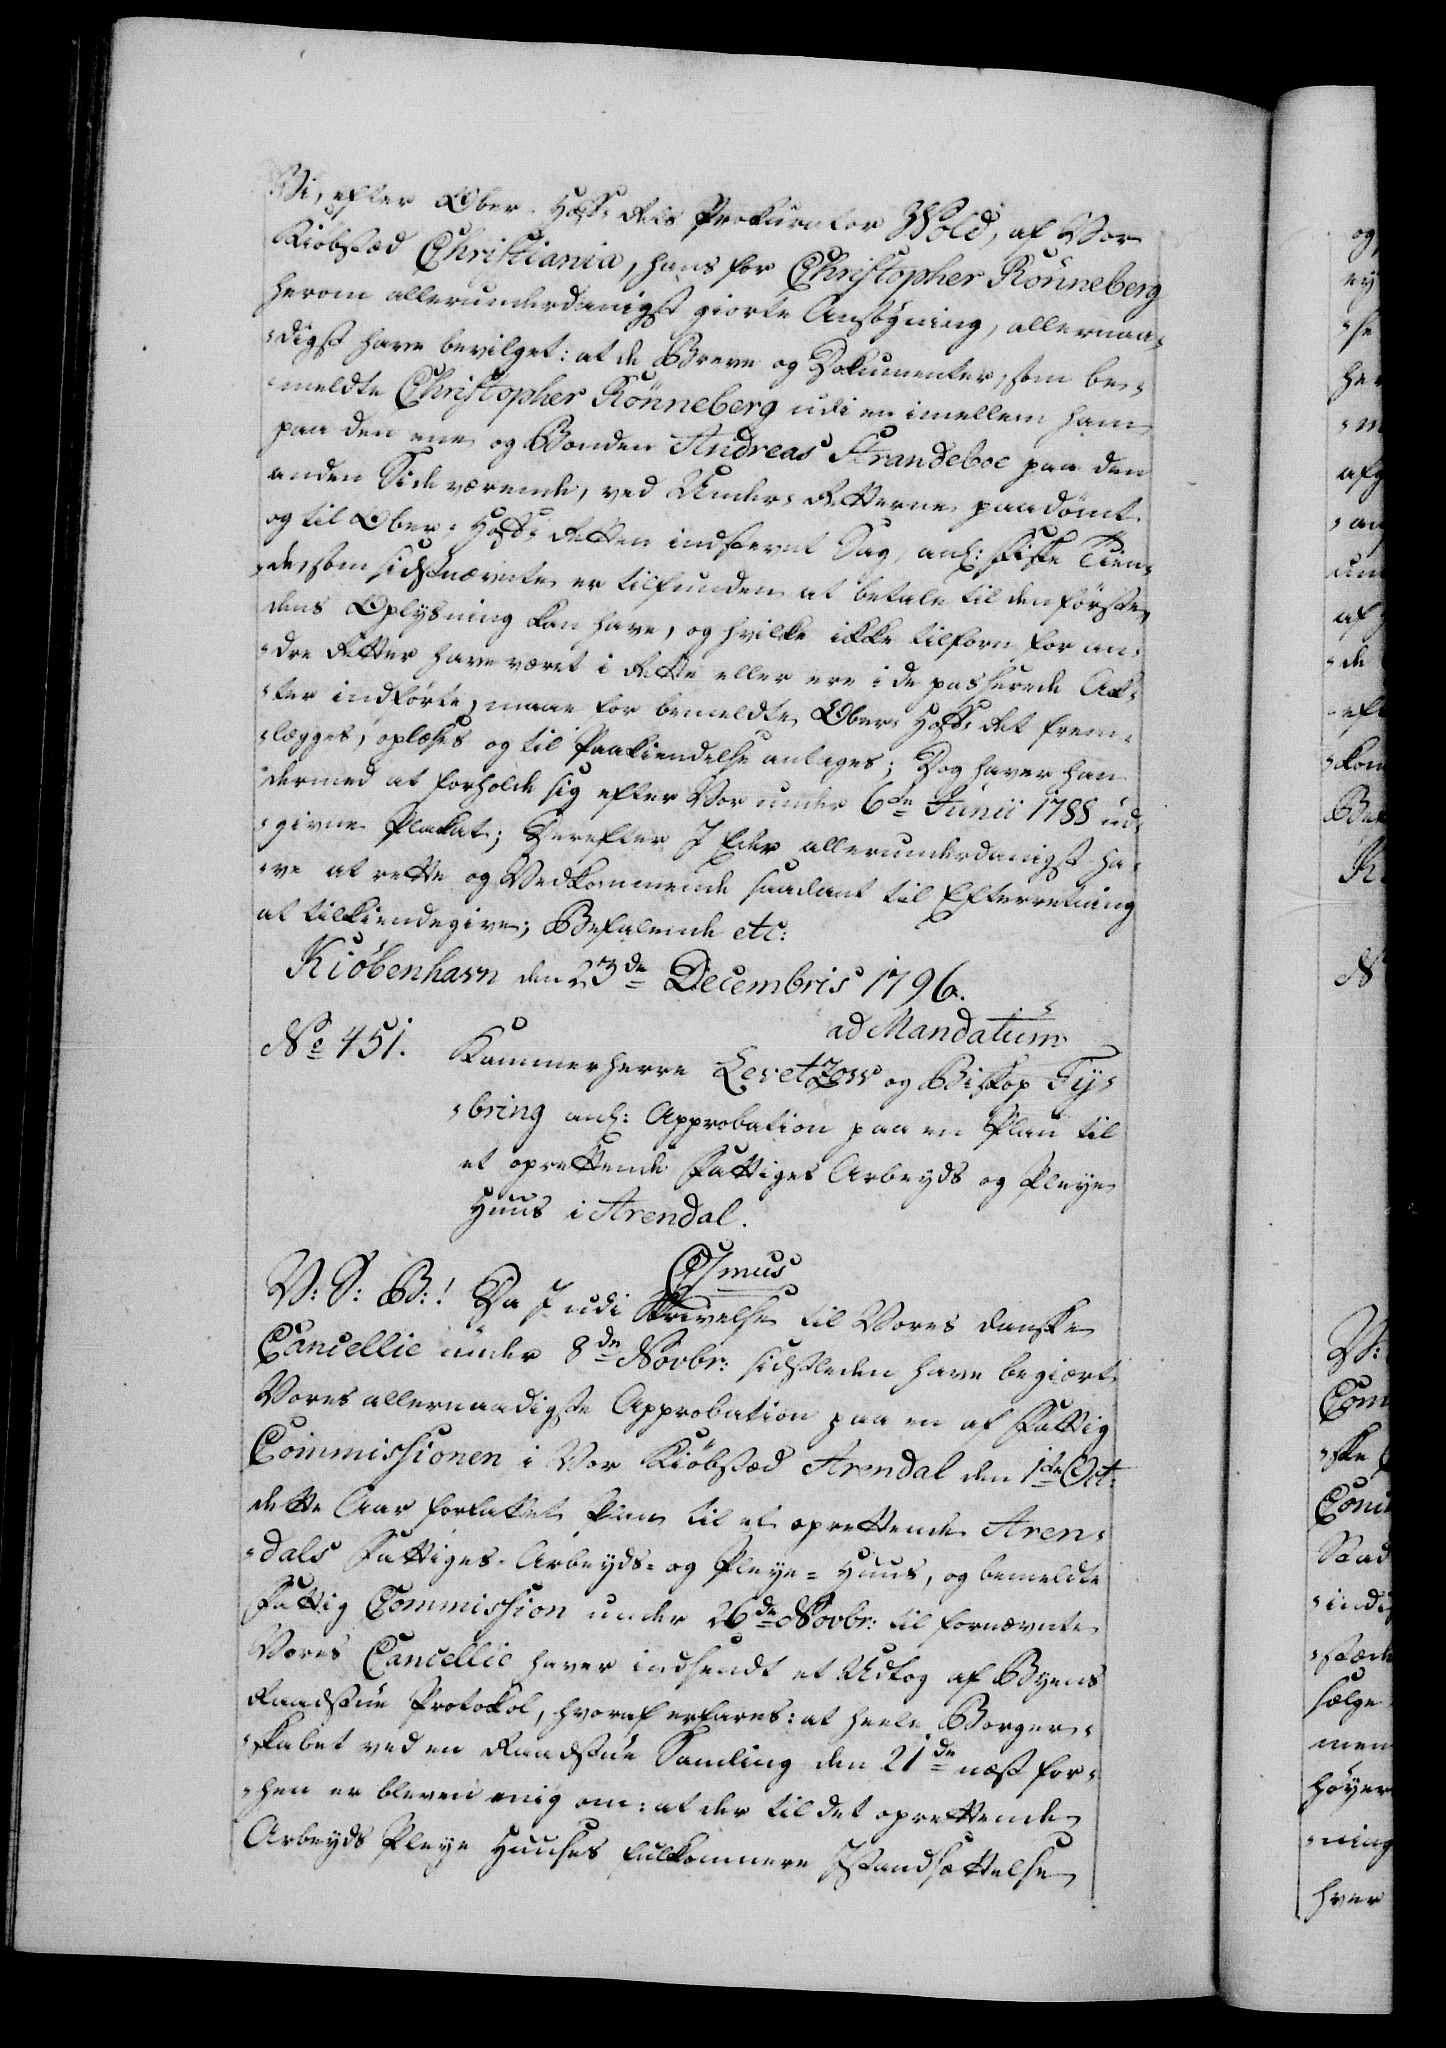 Vi, efter Ober-Hoff-Rets Prokurator Wold, af Vor
Kiøbstæd Christiania, hans for Christopher Rönneberg
herom allerunderdanigst giorte Ansøgning, allernaa-
-digst have bevilget: at de Breve og Dokumenter, som be-
-meldte Christopher Rönneberg udi en imellem ham
paa den ene og Bonden Andreas Strandeboe paa den
anden Side værende, ved Under-Retterne paadömt
og til Ober-Hoff-Retten indstevnt Sag, anl: Fiske Tien-
-de, som sidstnævnte er tilfunden at betale til den förste,
dens Oplysning kan have, og hvilke ikke tilforn for an-
-dre Retter have været i Rette eller ere i de passerede Ak-
-ter indførte, maae for bemeldte Ober-Hoff-Ret frem-
-lægges, oplæses og til Paakiendelse antages; Dog haver han
dermed at forholde sig efter Vor under 6de Junii 1788 ud-
-givne Plakat; Derefter I Eder allerunderdanigst ha-
-ve at rette og Vedkommende saadant til Efterretning
at tilkiendegive; Befalende etc:
Kiöbenhavn den 23de Decembris 1796.
ad Mandatum
No 451. Kammerherre Levetzow og Biskop Ty-
-bring anl: Approbation paa en Plan til
et oprettende Fattiges Arbeyds og Pleye
Huus i Arendal.
C7mus
V: S: B:! Da I udi Skrivelse til Vores danske
Cancellie under 8de Novbr: sidstleden have begiært
Vores allernaadigste Approbation paa en af Fattig
Commissionen i Vor Kiöbstæd Arendal den 1ste Oct:
dette Aar forfattet Plan til et oprettende Aren-
-dals Fattiges-Arbeyds- og Pleye-Huus, og bemeldte
Fattig Commission under 26de Novbr: til fornævnte
Vores Cancellie haver indsendt et Udtog af Byens
Raadstue Protokol, hvoraf erfares: at heele Borger-
-skabet ved en Raadstue Samling den 21de næst for-
-hen er bleven enig om: at der til det oprettende
Arbeyds Pleye Huuses fulkomnere Istandsættelse